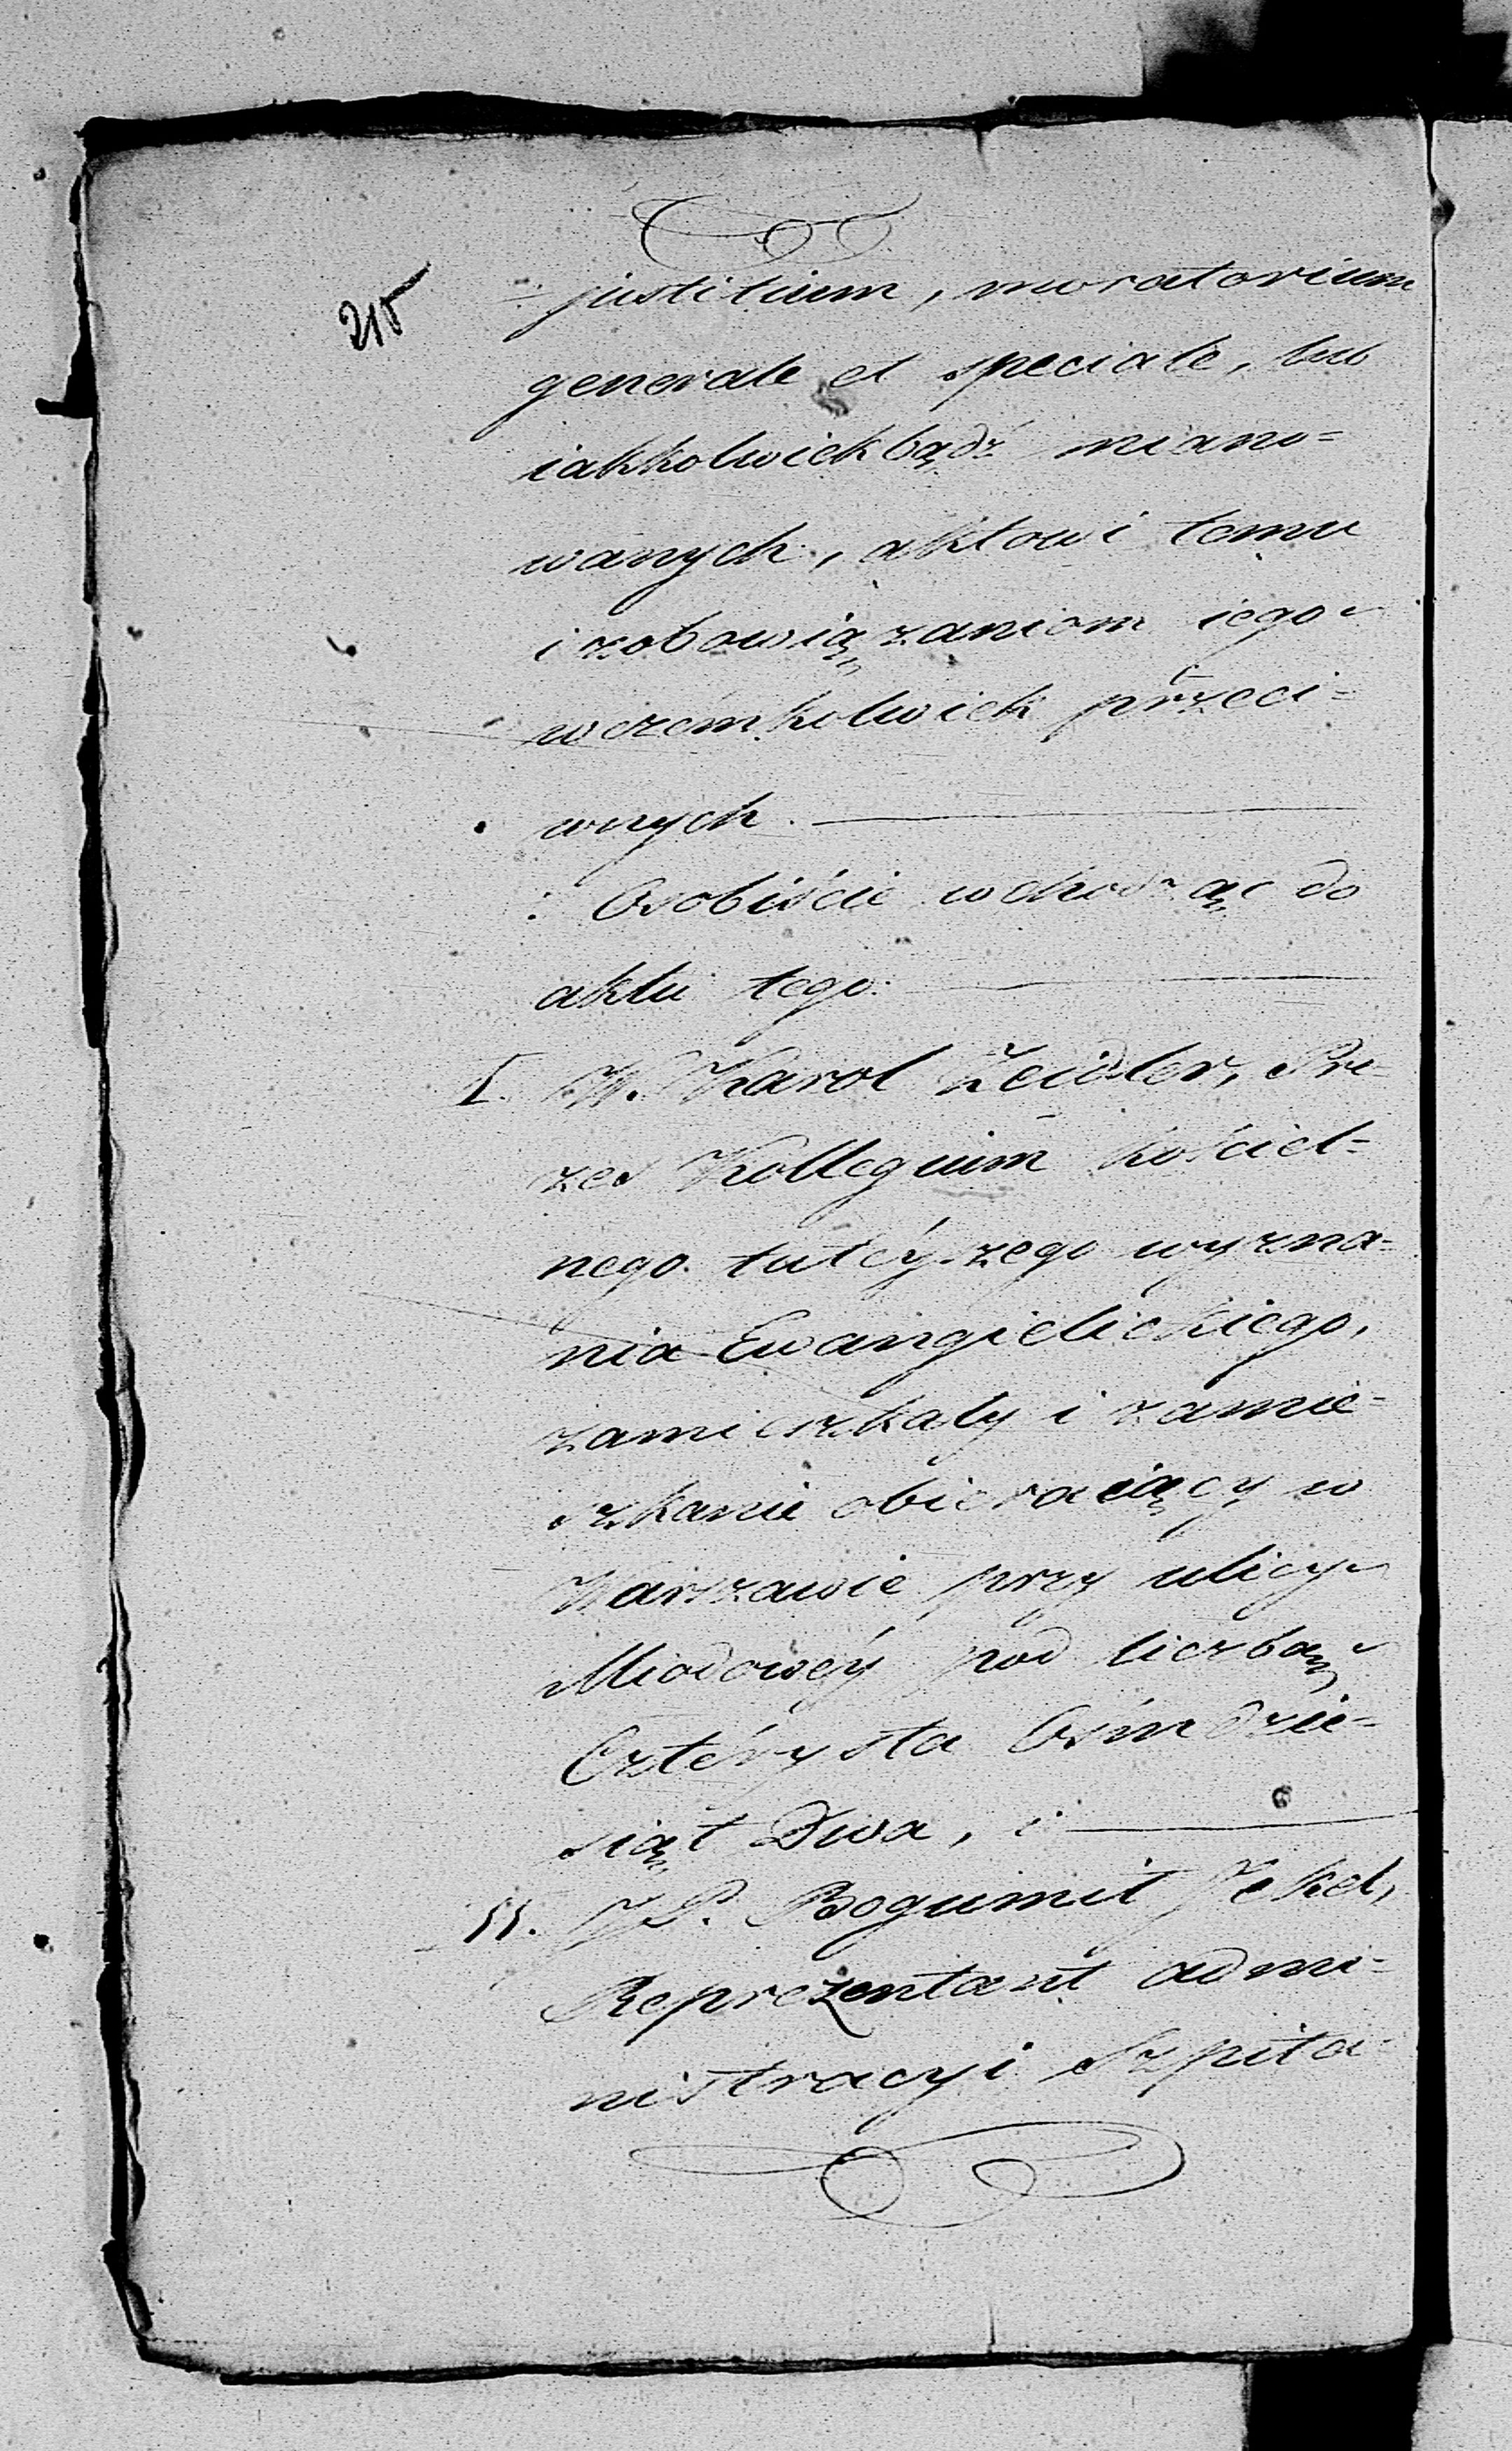 215
justitium, moratorium
generale et speciale, lub
iakkolwiekbądź miano=
wanych, aktowi temu
i zobowiązaniom iego
wczémkolwiek przeci=
wnych.
Osobiście wchodząc do
aktu tego:
I. W. Karol Zeidler, Pre=
zes Kollegium kościel=
nego tutéyszego wyzna=
nia Ewangielickiego,
zamieszkały i zamie=
szkanie obieraiący w
Warszawie przy ulicy
Miodowéy pod liczbą
Cztérysta Ośmdzie=
siąt Dwa, i
II. Bogumił Jekel,
Reprezentant admi=
nistracyi Szpita=